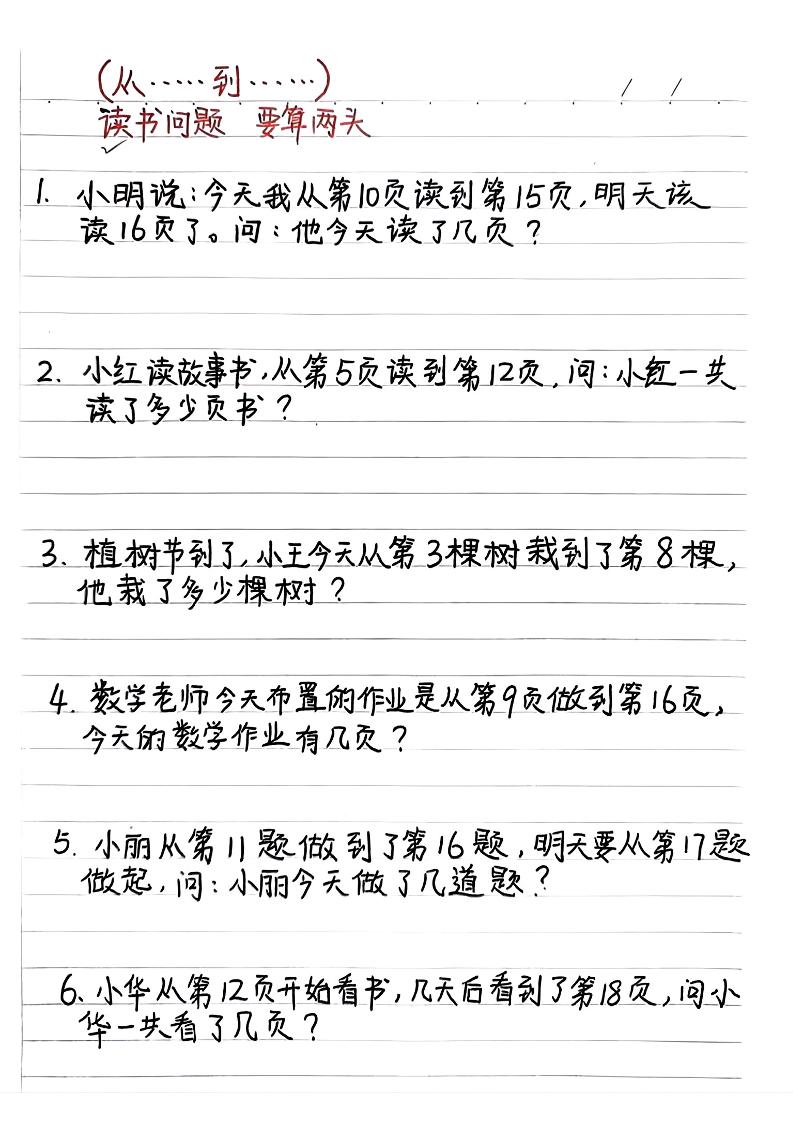 (从……到……)
读书问题 要算两头
1. 小明说:今天我从第10页读到第15页,明天该
读16页了。问:他今天读了几页?
2. 小红读故事书,从第5页读到第12页,问:小红一共
读了多少页书?
3. 植树节到了,小王今天从第3棵树栽到了第8棵,
他栽了多少棵树?
4. 数学老师今天布置的作业是从第9页做到第16页,
今天的数学作业有几页?
5. 小丽从第11题做到了第16题,明天要从第17题
做起,问:小丽今天做了几道题?
6、小华从第12页开始看书,几天后看到了第18页,问小
华一共看了几页?